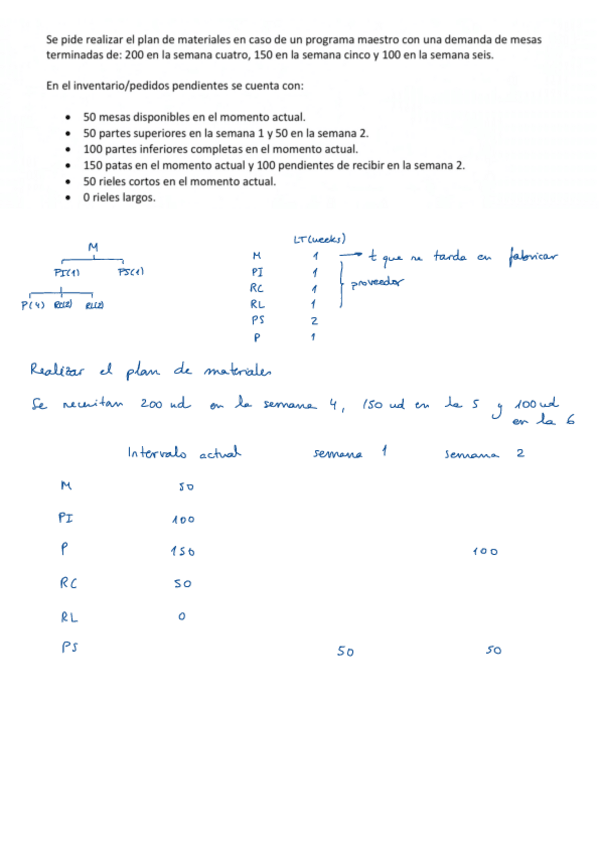 Se pide realizar el plan de materiales en caso de un programa maestro con una demanda de mesas
terminadas de: 200 en la semana cuatro, 150 en la semana cinco y 100 en la semana seis.
En el inventario/pedidos pendientes se cuenta con:
• 50 mesas disponibles en el momento actual.
• 50 partes superiores en la semana 1 y 50 en la semana 2.
• 100 partes inferiores completas en el momento actual.
• 150 patas en el momento actual y 100 pendientes de recibir en la semana 2.
• 50 rieles cortos en el momento actual.
• 0 rieles largos.
LT (weeks)
M
M 1 → t que se tarda en fabricar
PI(1) PS(1)
PI 1
proveedor
RC 1
P(4) RC(2) RL(2)
RL 1
PS 2
P 1
Realizar el plan de materiales
Se necesitan 200 ud en la semana 4, 150 ud en la 5 y 100 ud
en la 6
Intervalo actual semana 1 semana 2
M 50
PI 100
P 150 100
RC 50
RL 0
PS 50 50